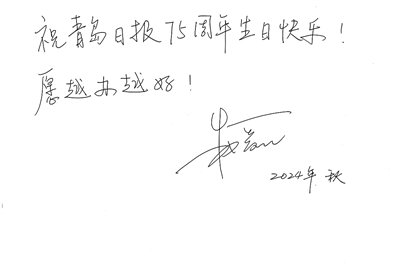 祝青岛日报75周年生日快乐！
愿越办越好！
2024年 秋